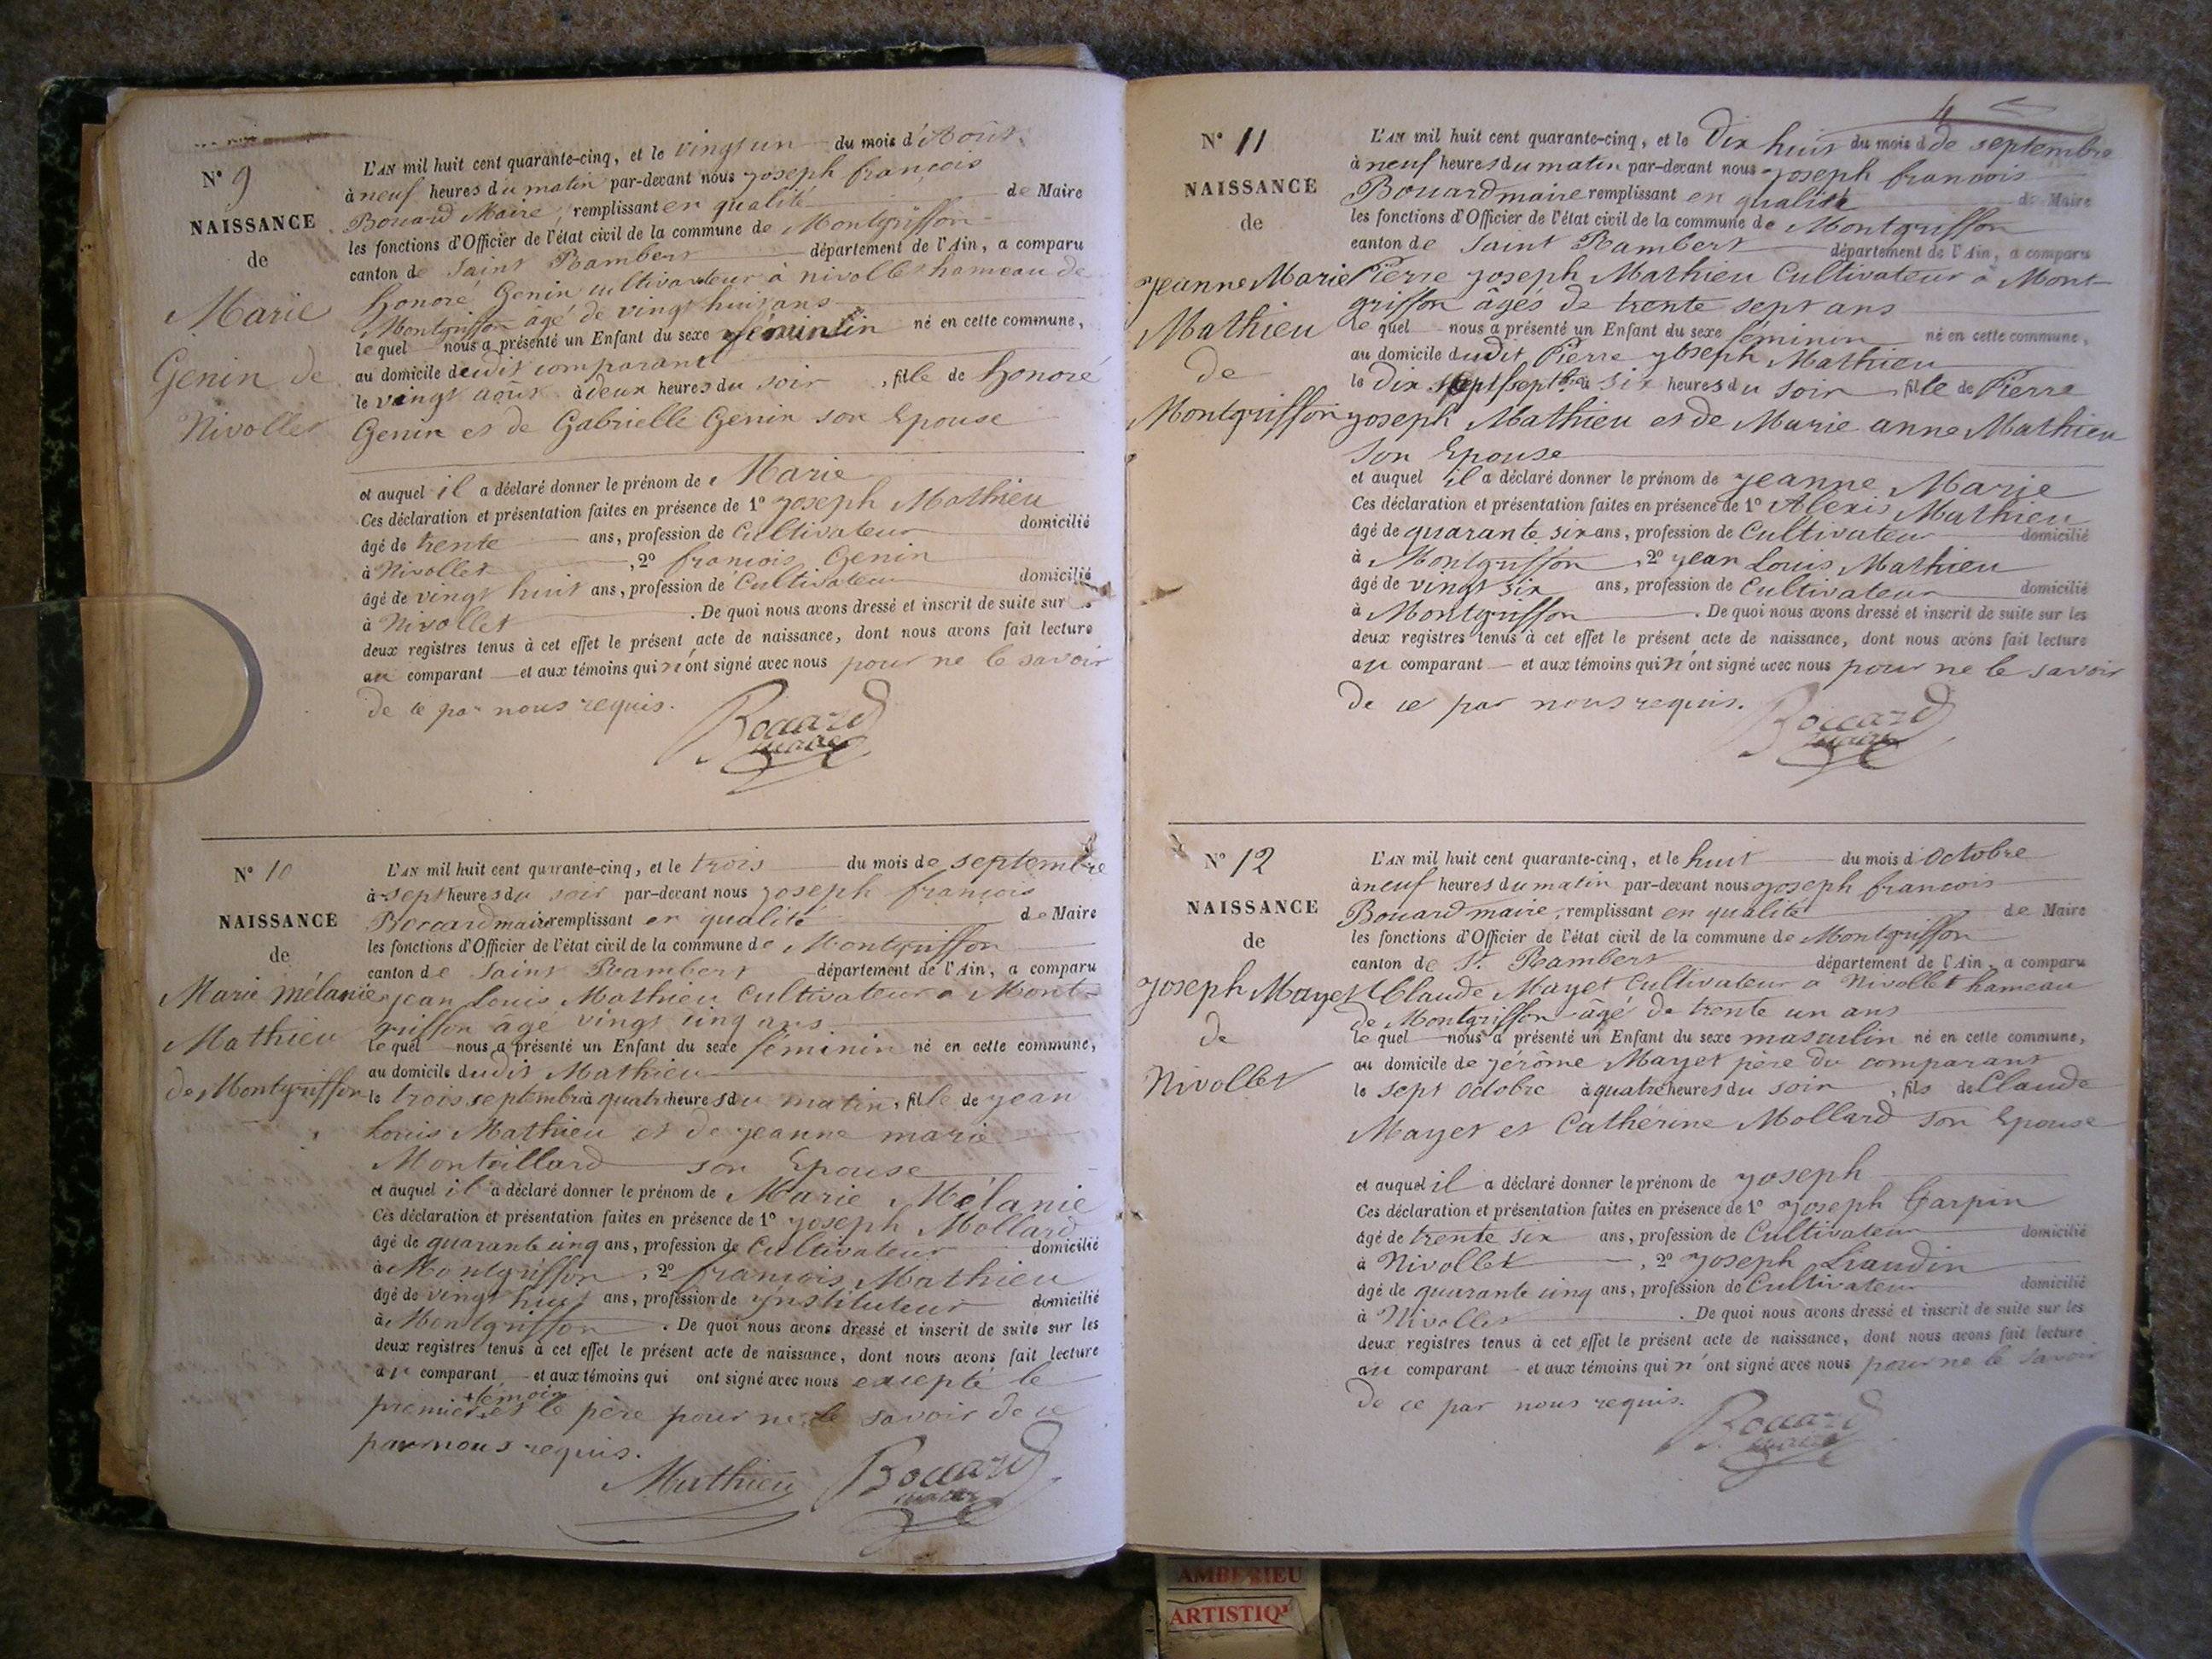 N° 9
NAISSANCE
de
Marie
Genin de
Nivollet
L'AN mil huit cent quarante-cinq, et le vingt un du mois d'Août
à neuf heures du matin par-devant nous joseph françois
Bouard Maire, remplissant en qualité de Maire
les fonctions d'Officier de l'état civil de la commune de Montgriffon
canton de Saint Rambert département de l'Ain, a comparu
honoré Genin cultivateur à nivollet hameau de
Montgriffon âgé de vingt huit ans
lequel nous a présenté un Enfant du sexe féminin né en cette commune,
au domicile dudit comparant
le vingt août à deux heures du soir, fille de honoré
Genin et de Gabrielle Genin son Epouse
et auquel il a déclaré donner le prénom de Marie
Ces déclaration et présentation faites en présence de 1° joseph Mathieu
âgé de trente ans, profession de Cultivateur domicilié
à Nivollet, 2° francois Genin
âgé de vingt huit ans, profession de Cultivateur domicilié
à Nivollet. De quoi nous avons dressé et inscrit de suite sur
deux registres tenus à cet effet le présent acte de naissance, dont nous avons fait lecture
au comparant et aux témoins qui n'ont signé avec nous pour ne le savoir
de ce par nous requis.
Bouard
maire
N° 10
NAISSANCE
de
Marie mélanie
Mathieu
de Montgriffon
L'AN mil huit cent quarante-cinq, et le trois du mois de septembre
à sept heures du soir par-devant nous joseph françois
Bouard maire remplissant en qualité de Maire
les fonctions d'Officier de l'état civil de la commune de Montgriffon
canton de Saint Rambert département de l'Ain, a comparu
jean Louis Mathieu Cultivateur a Mont-
griffon âgé vingt cinq ans
lequel nous a présenté un Enfant du sexe féminin né en cette commune,
au domicile dudit Mathieu
le trois septembre à quatre heures du matin, fille de jean
Louis Mathieu et de jeanne marie
Montillard son Epouse
et auquel il a déclaré donner le prénom de Marie Mélanie
Ces déclaration et présentation faites en présence de 1° joseph Mollard
âgé de quarante cinq ans, profession de Cultivateur domicilié
à Montgriffon, 2° francois Mathieu
âgé de vingt huit ans, profession de ynstituteur domicilié
à Montgriffon. De quoi nous avons dressé et inscrit de suite sur les
deux registres tenus à cet effet le présent acte de naissance, dont nous avons fait lecture
au comparant et aux témoins qui ont signé avec nous excepté le
témoin
premier et le père pour ne le savoir de ce
par nous requis.
Mathieu Bouard
maire
N° 11
NAISSANCE
de
jeanne Marie
Mathieu
de
Montgriffon
4
L'AN mil huit cent quarante-cinq, et le Dix huit du mois d de septembre
à neuf heures du matin par-devant nous joseph francois
Bouard maire remplissant en qualité de Maire
les fonctions d'Officier de l'état civil de la commune de Montgriffon
canton de Saint Rambert département de l'Ain, a comparu
Pierre joseph Mathieu Cultivateur à Mont-
griffon âgés de trente sept ans
lequel nous a présenté un Enfant du sexe féminin né en cette commune,
au domicile dudit Pierre joseph Mathieu
le Dix sept septbre à six heures du soir fille de Pierre
joseph Mathieu et de Marie anne Mathieu
son Epouse
et auquel il a déclaré donner le prénom de jeanne Marie
Ces déclaration et présentation faites en présence de 1° Alexis Mathieu
âgé de quarante six ans, profession de Cultivateur domicilié
à Montgriffon, 2° jean Louis Mathieu
âgé de vingt six ans, profession de Cultivateur domicilié
à Montgriffon. De quoi nous avons dressé et inscrit de suite sur les
deux registres tenus à cet effet le présent acte de naissance, dont nous avons fait lecture
au comparant et aux témoins qui n'ont signé avec nous pour ne le savoir
de ce par nous requis.
Bouard
maire
N° 12
NAISSANCE
de
joseph Mayet
de
Nivollet
L'AN mil huit cent quarante-cinq, et le huit du mois d'Octobre
à neuf heures du matin par-devant nous joseph francois
Bouard maire, remplissant en qualité de Maire
les fonctions d'Officier de l'état civil de la commune de Montgriffon
canton de St. Rambert département de l'Ain, a comparu
Claude Mayet Cultivateur a Nivollet hameau
de Montgriffon âgé de trente un ans
lequel nous a présenté un Enfant du sexe masculin né en cette commune,
au domicile de jérôme Mayet père du comparant
le sept octobre à quatre heures du soir, fils de Claude
Mayet et Cathérine Mollard son Epouse
et auquel il a déclaré donner le prénom de joseph
Ces déclaration et présentation faites en présence de 1° joseph Carpin
âgé de trente six ans, profession de Cultivateur domicilié
à Nivollet, 2° joseph Liaudin
âgé de quarante cinq ans, profession de Cultivateur domicilié
à Nivollet. De quoi nous avons dressé et inscrit de suite sur les
deux registres tenus à cet effet le présent acte de naissance, dont nous avons fait lecture
au comparant et aux témoins qui n'ont signé avec nous pour ne le savoir
de ce par nous requis.
Bouard
maire
AMBERIEU
ARTISTIQ